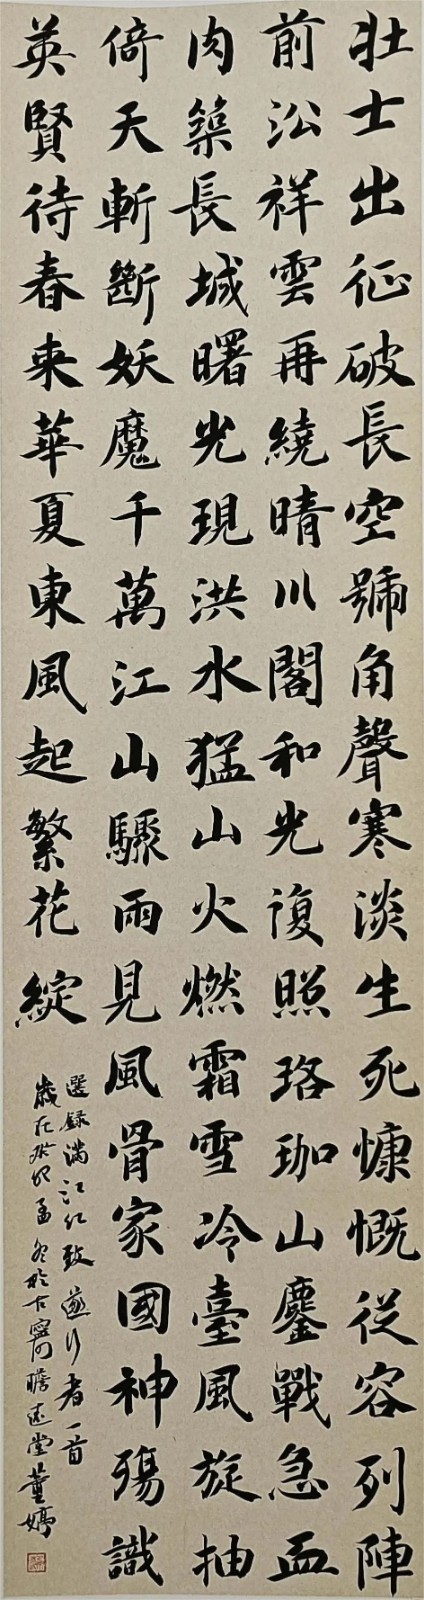 壯士出征破長空號角聲寒淡生死慷慨從容列陣
前沿祥雲再繞晴川閣和光復照珞珈山鏖戰急血
肉築長城曙光現洪水猛山火燃霜雪冷臺風旋抽
倚天斬斷妖魔千萬江山驟雨見風骨家國神殤識
英賢待春來華夏東風起繁花綻
選録滿江紅致逆行者一首
歲在癸卯孟冬於古寧瞻遠堂董婷